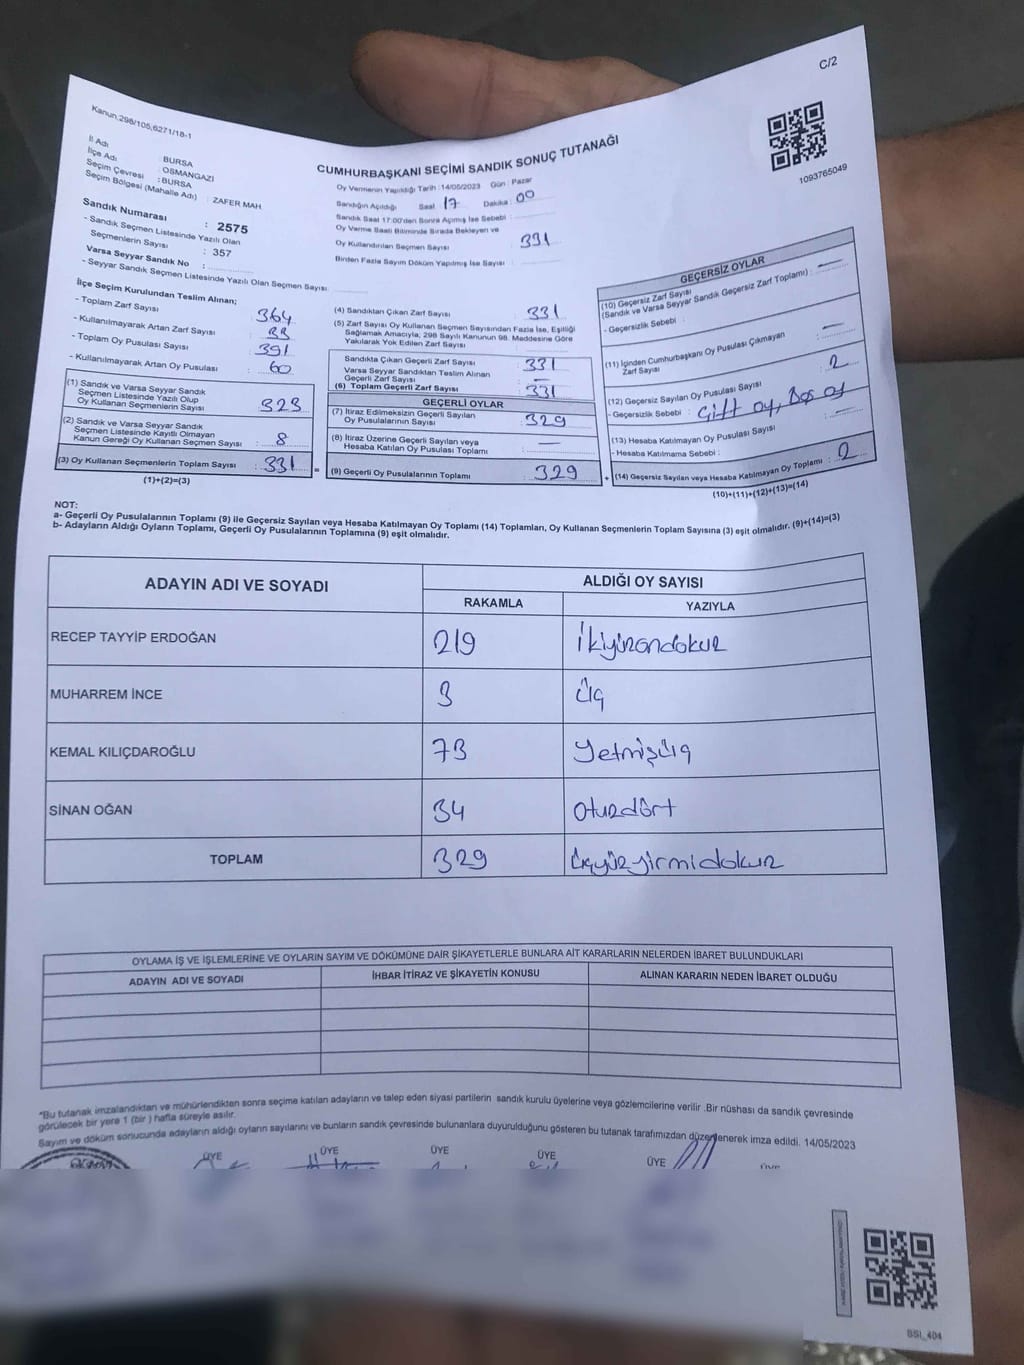 C/2
Kanun,298/105,6271/18-1
1093765049
CUMHURBAŞKANI SEÇİMİ SANDIK SONUÇ TUTANAĞI
İl Adı : BURSA
İlçe Adı : OSMANGAZİ
Seçim Çevresi : BURSA
Seçim Bölgesi (Mahalle Adı) : ZAFER MAH.
Sandık Numarası : 2575
- Sandık Seçmen Listesinde Yazılı Olan
Seçmenlerin Sayısı : 357
Varsa Seyyar Sandık No :
- Seyyar Sandık Seçmen Listesinde Yazılı Olan Seçmen Sayısı:
Oy Vermenin Yapıldığı Tarih : 14/05/2023 Gün : Pazar
Sandığın Açıldığı Saat 17 Dakika : 00
Sandık Saat 17:00'den Sonra Açılmış İse Sebebi :
Oy Verme Saati Bitiminde Sırada Bekleyen ve
Oy Kullandırılan Seçmen Sayısı : 331
Birden Fazla Sayım Döküm Yapılmış İse Sayısı :
İlçe Seçim Kurulundan Teslim Alınan;
- Toplam Zarf Sayısı : 364
- Kullanılmayarak Artan Zarf Sayısı : 33
- Toplam Oy Pusulası Sayısı : 391
- Kullanılmayarak Artan Oy Pusulası : 60
(1) Sandık ve Varsa Seyyar Sandık
Seçmen Listesinde Yazılı Olup
Oy Kullanan Seçmenlerin Sayısı : 323
(2) Sandık ve Varsa Seyyar Sandık
Seçmen Listesinde Kayıtlı Olmayan
Kanun Gereği Oy Kullanan Seçmen Sayısı : 8
(3) Oy Kullanan Seçmenlerin Toplam Sayısı : 331
(1)+(2)=(3)
(4) Sandıktan Çıkan Zarf Sayısı : 331
(5) Zarf Sayısı Oy Kullanan Seçmen Sayısından Fazla İse, Eşitliği
Sağlamak Amacıyla, 298 Sayılı Kanunun 98. Maddesine Göre
Yakılarak Yok Edilen Zarf Sayısı :
Sandıkta Çıkan Geçerli Zarf Sayısı : 331
Varsa Seyyar Sandıktan Teslim Alınan
Geçerli Zarf Sayısı : —
(6) Toplam Geçerli Zarf Sayısı : 331
GEÇERLİ OYLAR
(7) İtiraz Edilmeksizin Geçerli Sayılan
Oy Pusulalarının Sayısı : 329
(8) İtiraz Üzerine Geçerli Sayılan veya
Hesaba Katılan Oy Pusulası Toplamı : —
(9) Geçerli Oy Pusulalarının Toplamı : 329
GEÇERSİZ OYLAR
(10) Geçersiz Zarf Sayısı
(Sandık ve Varsa Seyyar Sandık Geçersiz Zarf Toplamı) : —
- Geçersizlik Sebebi :
(11) İçinden Cumhurbaşkanı Oy Pusulası Çıkmayan
Zarf Sayısı : —
(12) Geçersiz Sayılan Oy Pusulası Sayısı : 2
- Geçersizlik Sebebi : Çift oy, Boş oy
(13) Hesaba Katılmayan Oy Pusulası Sayısı : —
- Hesaba Katılmama Sebebi :
(14) Geçersiz Sayılan veya Hesaba Katılmayan Oy Toplamı : 2
(10)+(11)+(12)+(13)=(14)
NOT:
a- Geçerli Oy Pusulalarının Toplamı (9) ile Geçersiz Sayılan veya Hesaba Katılmayan Oy Toplamı (14) Toplamları, Oy Kullanan Seçmenlerin Toplam Sayısına (3) eşit olmalıdır. (9)+(14)=(3)
b- Adayların Aldığı Oyların Toplamı, Geçerli Oy Pusulalarının Toplamına (9) eşit olmalıdır.
ADAYIN ADI VE SOYADI ALDIĞI OY SAYISI
RAKAMLA YAZIYLA
RECEP TAYYİP ERDOĞAN 219 İkiyüzondokuz
MUHARREM İNCE 3 Üç
KEMAL KILIÇDAROĞLU 73 Yetmişüç
SİNAN OĞAN 34 Otuzdört
TOPLAM 329 Üçyüzyirmidokuz
OYLAMA İŞ VE İŞLEMLERİNE VE OYLARIN SAYIM VE DÖKÜMÜNE DAİR ŞİKAYETLERLE BUNLARA AİT KARARLARIN NELERDEN İBARET BULUNDUKLARI
ADAYIN ADI VE SOYADI İHBAR İTİRAZ VE ŞİKAYETİN KONUSU ALINAN KARARIN NEDEN İBARET OLDUĞU
*Bu tutanak imzalandıktan ve mühürlendikten sonra seçime katılan adayların ve talep eden siyasi partilerin sandık kurulu üyelerine veya gözlemcilerine verilir .Bir nüshası da sandık çevresinde
görülecek bir yere 1 (bir ) hafta süreyle asılır.
Sayım ve döküm sonucunda adayların aldığı oyların sayılarını ve bunların sandık çevresinde bulunanlara duyurulduğunu gösteren bu tutanak tarafımızdan düzenlenerek imza edildi. 14/05/2023
ÜYE ÜYE ÜYE ÜYE ÜYE ÜYE
BSI_404